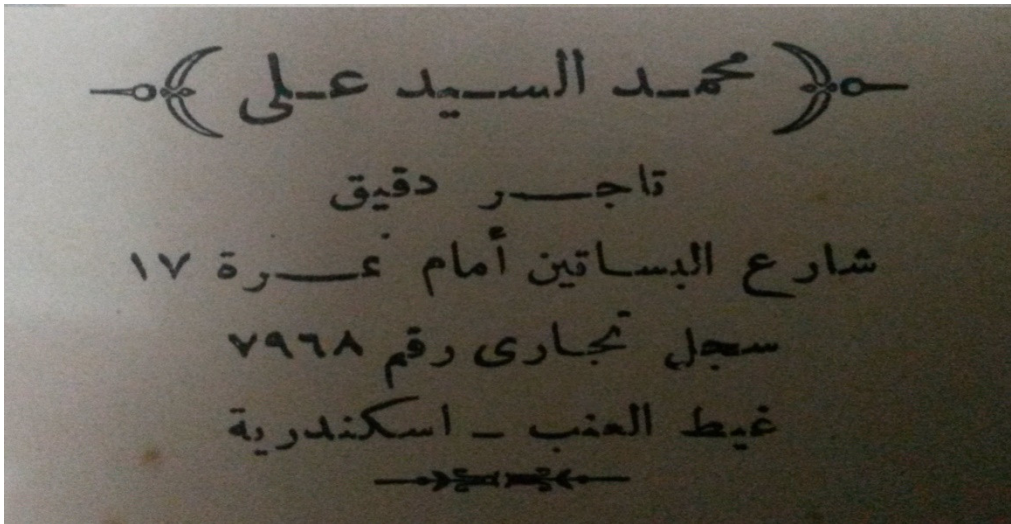 محمد السيد على
تاجر دقيق
شارع البساتين أمام نمرة ١٧
سجل تجارى رقم ٧٩٦٨
غيط العنب - اسكندرية